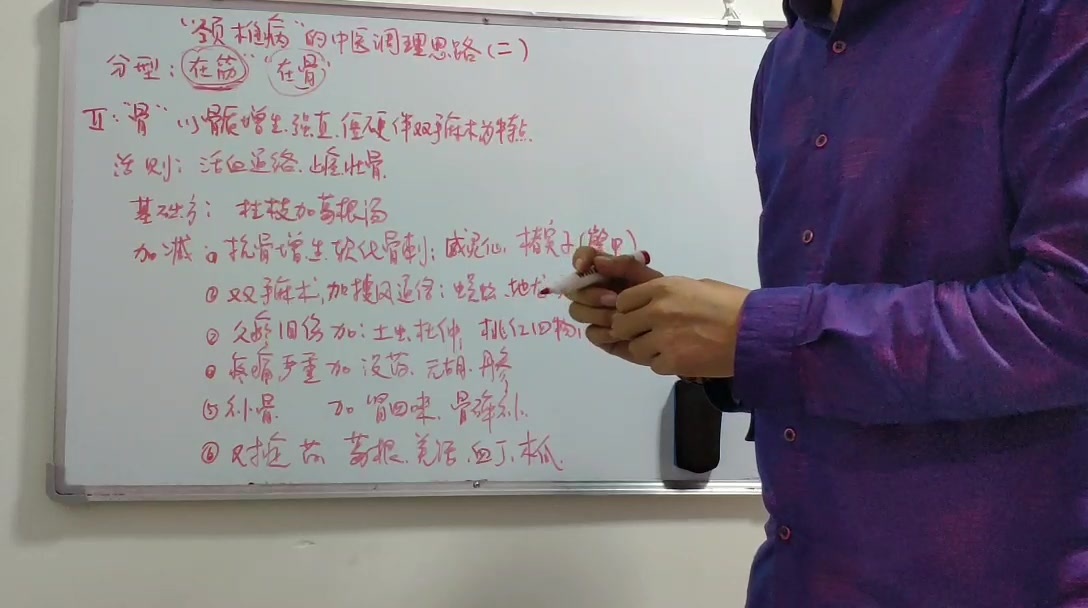 “颈椎病”的中医调理思路(二)
分型:在筋 “在骨”
Ⅱ:“骨” 以骨质增生.强直.僵硬伴双手麻木为特点.
治则:活血通络.壮骨.
基础方: 桂枝加葛根汤
加减 抗骨增生 软化骨刺:威灵仙. 楮实子(
① 双手麻木,加搜风通络:蜈蚣.地龙
② 久瘀旧伤 加:土虫 杜仲. 桃红四物,
疼痛严重加 没药.元胡.丹参
⑤补骨 加 肾四味.骨碎补.
⑥ 对症药 葛根.羌活.血丁.木瓜.